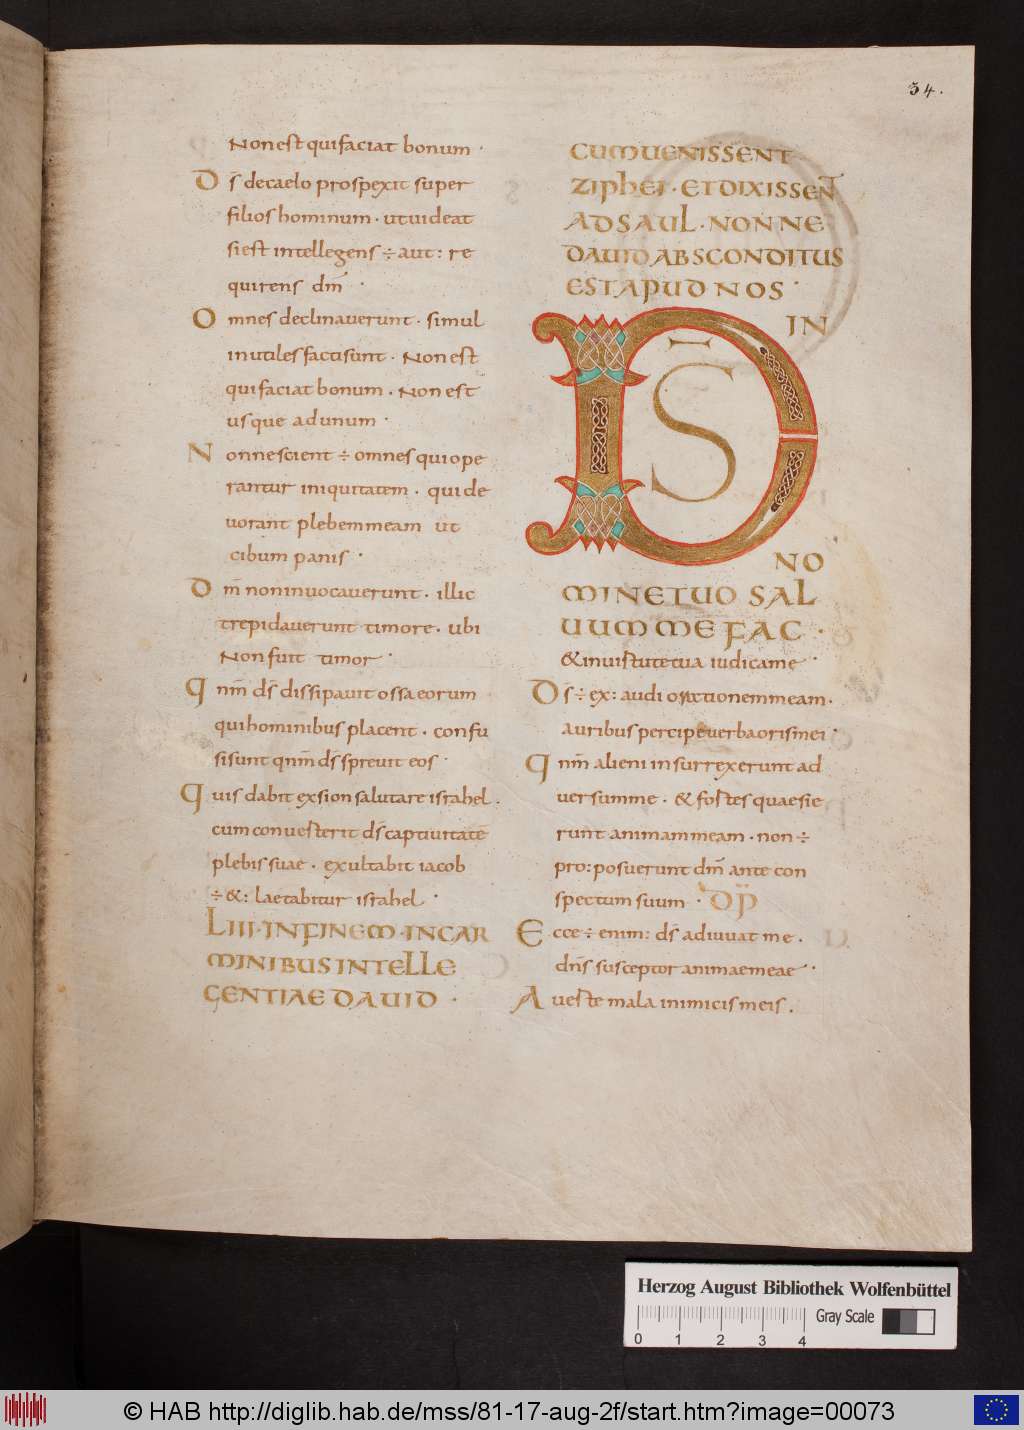 34.
Non est qui faciat bonum ·
D s̄ de caelo prospexit super
filios hominum · ut uideat
si est intellegens ÷ aut : re
quirens dm̄ ·
O mnes declinauerunt · simul
inutiles facti sunt · Non est
qui faciat bonum . Non est
usque ad unum ·
N onne scient ÷ omnes qui ope
rantur iniquitatem · qui de
uorant plebem meam ut
cibum panis ·
D m̄ non inuocauerunt · illic
trepidauerunt timore · ubi
Non fuit timor ·
Q nm̄ ds̄ dissipauit ossa eorum
qui hominibus placent · confu
si sunt qnm̄ ds̄ spreuit eos ·
Q uis dabit ex sion salutare israhel .
cum conuerterit ds̄ captiuitatē
plebis suae · exultabit iacob
÷ & : laetabitur israhel ·
LIII · IN FINEM · IN CAR
MINIBUS INTELLE
GENTIAE DAUID ·
CUM UENISSENT
ZIPHEI · ET DIXISSENT
AD SAUL · NONNE
DAUID ABSCONDITUS
EST APUD NOS ·
D S̄ IN
NO
MINE TUO SAL
UUM ME FAC ·
& in uirtute tua iudica me ·
D s̄ ÷ ex : audi orationem meam ·
auribus percipe uerba oris mei ·
Q nm̄ alieni insurrexerunt ad
uersum me · & fortes quaesie
runt animam meam · non ÷
pro : posuerunt dm̄ ante con
spectum suum · DP
E cce ÷ enim : ds̄ adiuuat me .
dn̄s susceptor animae meae ·
A uerte mala inimicis meis .
Herzog August Bibliothek Wolfenbüttel
0 1 2 3 4 Gray Scale
© HAB http://diglib.hab.de/mss/81-17-aug-2f/start.htm?image=00073